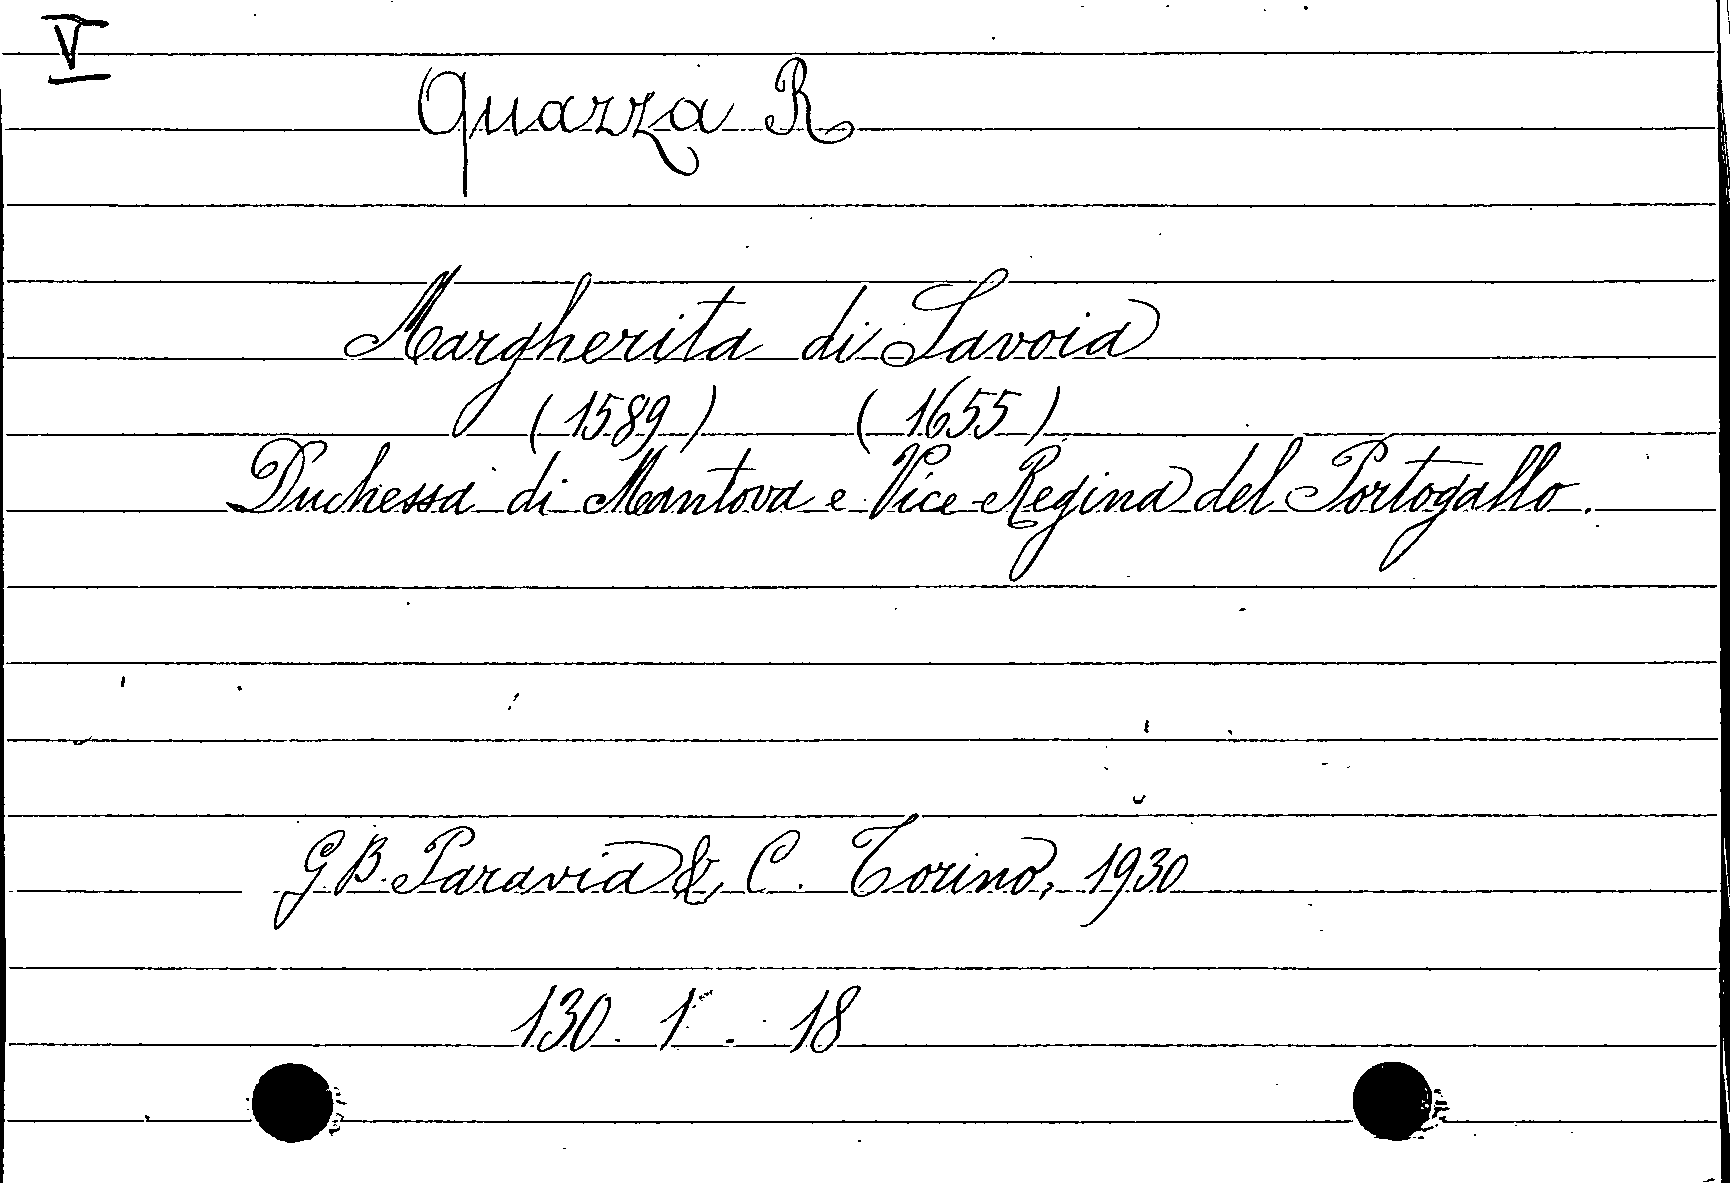 V
Quazza R
Margherita di Savoia
(1589) (1655)
Duchessa di Mantova e Vice-Regina del Portogallo.
G B. Paravia & C. Torino, 1930
130. 1. 18